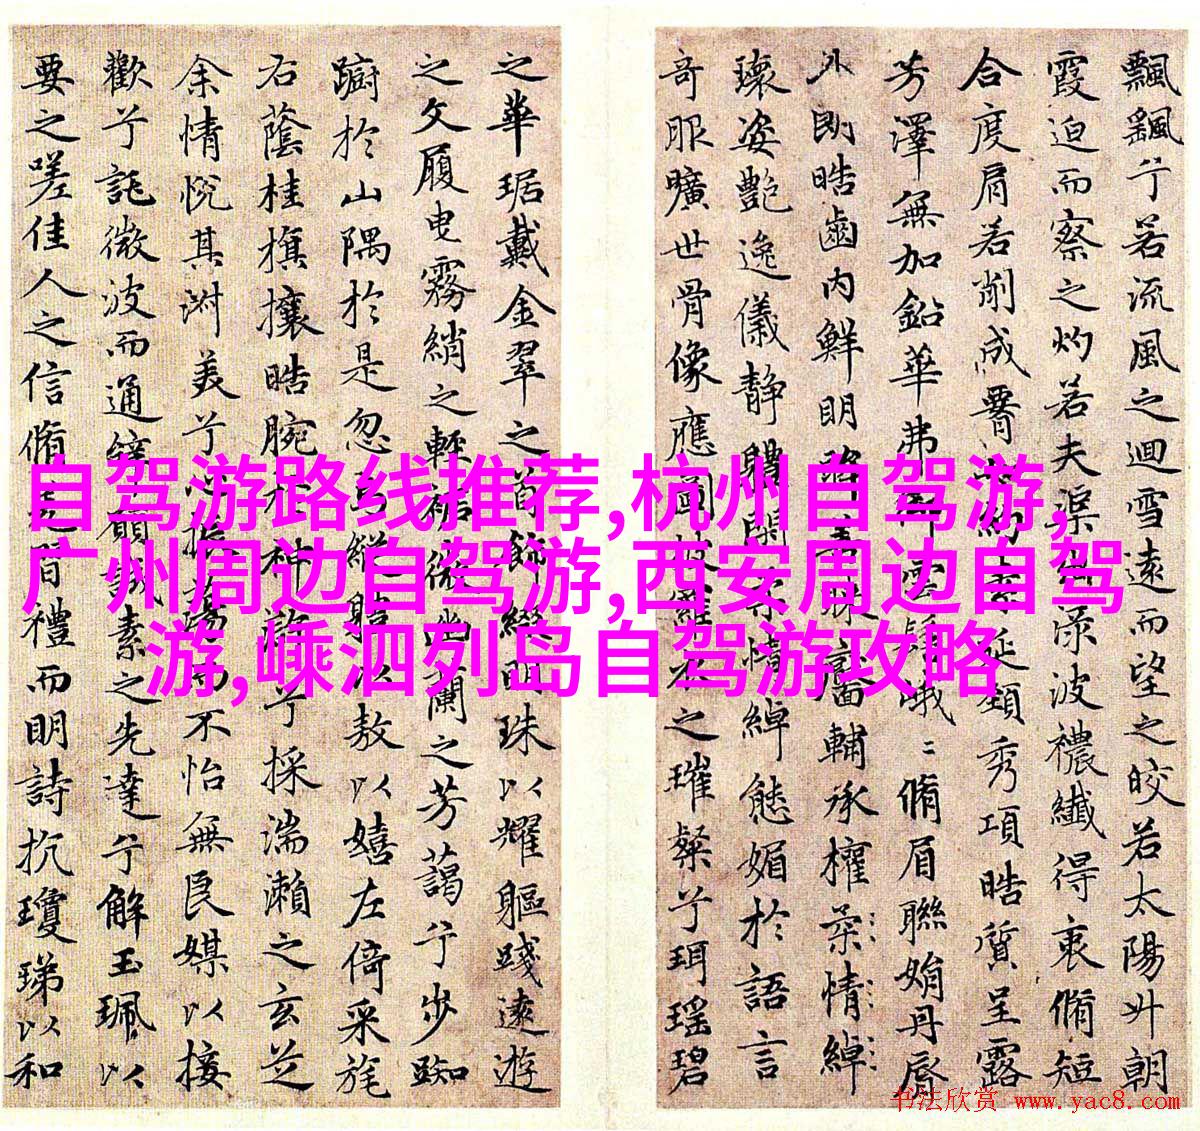 飄飖兮若流風之迴雪遠而望之皎若太陽升朝
霞迫而察之灼若夫渠出淥波襛纖得衷脩短
合度肩若削成約素延頸秀項皓質呈露
芳澤無加鉛華弗御雲髻峨〻脩眉聯娟丹脣
外朗皓齒内鮮明眸善睞靨輔承權柔情綽
瓌姿艷逸儀静體閑柔情綽態媚於語言
奇服曠世骨像應圖披羅衣之璀粲兮珥瑤碧
之華琚戴金翠之首飾綴明珠以耀軀踐遠遊
之文履曳霧綃之輕裾微幽蘭之芳藹兮步踟
躕於山隅於是忽焉縱體以敖以嬉左倚采旄
右蔭桂旗攘皓腕於神滸兮採湍瀨之玄芝
余情悅其淑美兮心振蕩而不怡無良媒以接
歡兮託微波而通辭願誠素之先達兮解玉珮以
要之嗟佳人之信脩羌習禮而明詩抗瓊珶以和
自驾游路线推荐,杭州自驾游,
广州周边自驾游,西安周边自驾
游,嵊泗列岛自驾游攻略
书法欣赏 www.yac8.com